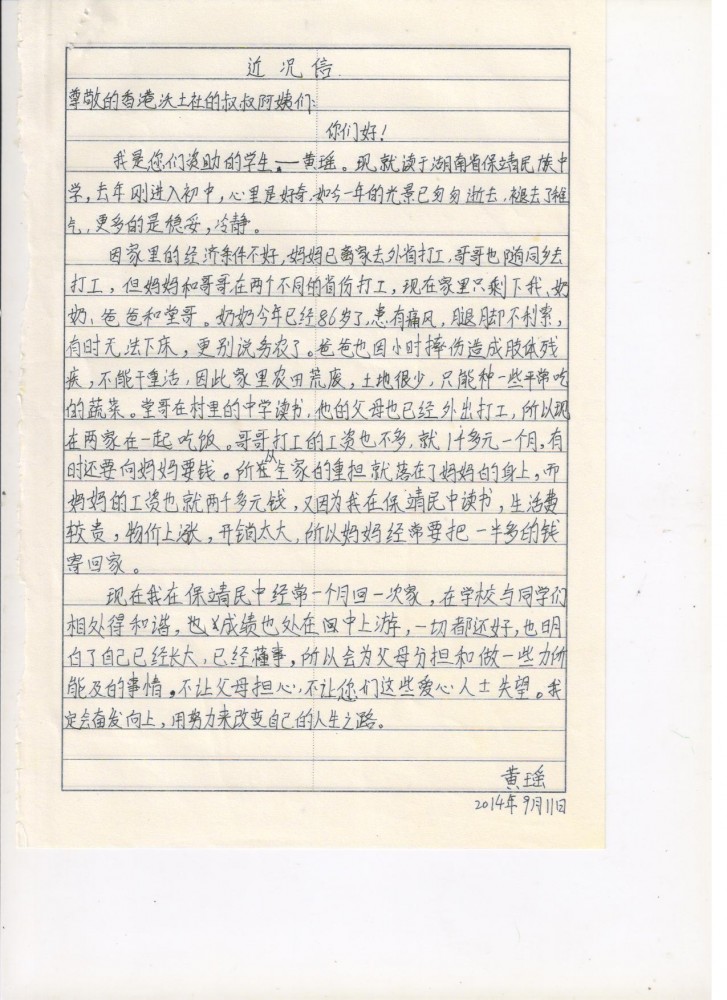 近况信
尊敬的香港沃土社的叔叔阿姨们:
你们好!
我是你们资助的学生——黄瑶。现就读于湖南省保靖民族中
学,去年刚进入初中,心里是好奇,如今一年的光景已匆匆逝去,褪去了稚
气,更多的是稳妥,冷静。
因家里的经济条件不好,妈妈已离家去外省打工,哥哥也随同乡去
打工,但妈妈和哥哥在两个不同的省份打工,现在家里只剩下我、奶
奶、爸爸和堂哥。奶奶今年已经86岁了,患有痛风,腿脚却不利索,
有时无法下床,更别说务农了。爸爸也因小时摔伤造成肢体残
疾,不能干重活,因此家里农田荒废,土地很少,只能种一些平常吃
的蔬菜。堂哥在村里的中学读书,他的父母也已经外出打工,所以现
在两家在一起吃饭。哥哥打工的工资也不多,就1千多元一个月,有
时还要向妈妈要钱。所以全家的重担就落在了妈妈的身上,而
妈妈的工资也就两千多元钱,又因为我在保靖民中读书,生活费
较贵,物价上涨,开销太大,所以妈妈经常要把一半多的钱
寄回家。
现在我在保靖民中经常一个月回一次家,在学校与同学们
相处得和谐,成绩也处在中上游,一切都还好,也明
白了自己已经长大,已经懂事,所以会为父母分担和做一些力所
能及的事情,不让父母担心,不让你们这些爱心人士失望。我
定会奋发向上,用努力来改变自己的人生之路。
黄瑶
2014年9月11日